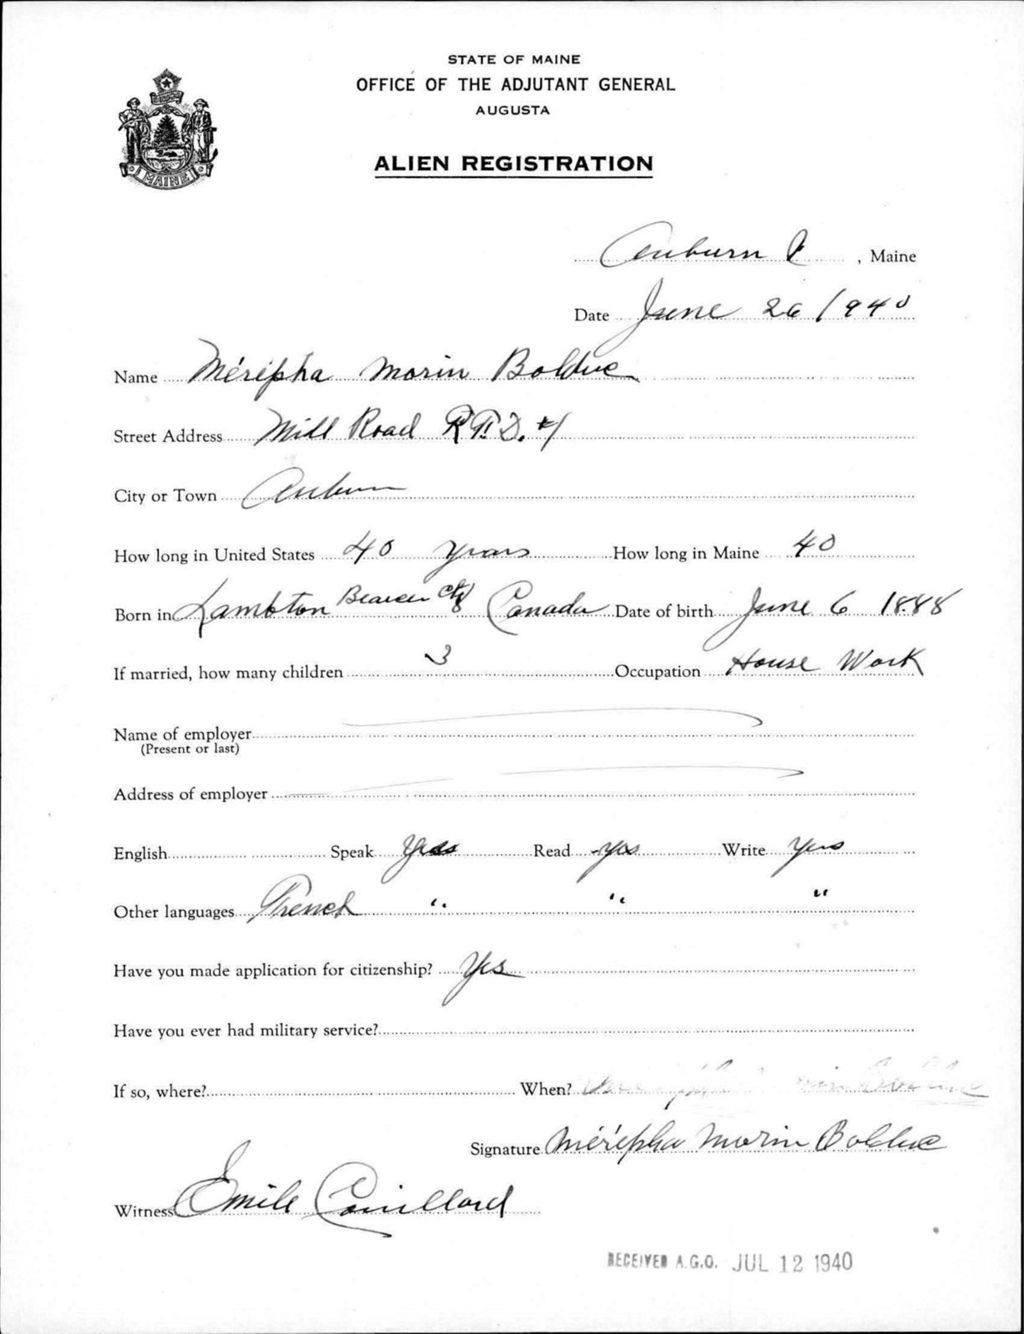 STATE OF MAINE
OFFICE OF THE ADJUTANT GENERAL
AUGUSTA
MAINE
ALIEN REGISTRATION
Auburn, Maine
Date June 26 1940
Name Mérépha Morin Bolduc
Street Address Mill Road R.F.D. #1
City or Town Auburn
How long in United States 40 years How long in Maine 40
Born in Lambton Canada Date of birth June 6 1888
If married, how many children 3 Occupation House Work
Name of employer
(Present or last)
Address of employer
English Speak Yes Read Yes Write Yes
Other languages French " " "
Have you made application for citizenship? Yes
Have you ever had military service?
If so, where? When?
Signature Mérépha Morin Bolduc
Witness Emile Couillard
RECEIVED A.G.O. JUL 12 1940